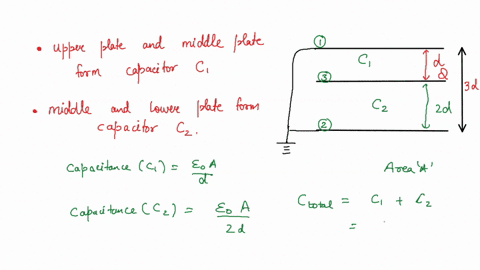 • Upper plate and middle plate
form capacitor C₁
• middle and Lower plate form
capacitor C₂.
Capacitance (C₁) = ε₀ A / d
Capacitance (C₂) = ε₀ A / 2d
①
C₁
d
③
Q
3d
C₂
2d
②
Area 'A'
C total = C₁ + C₂
=